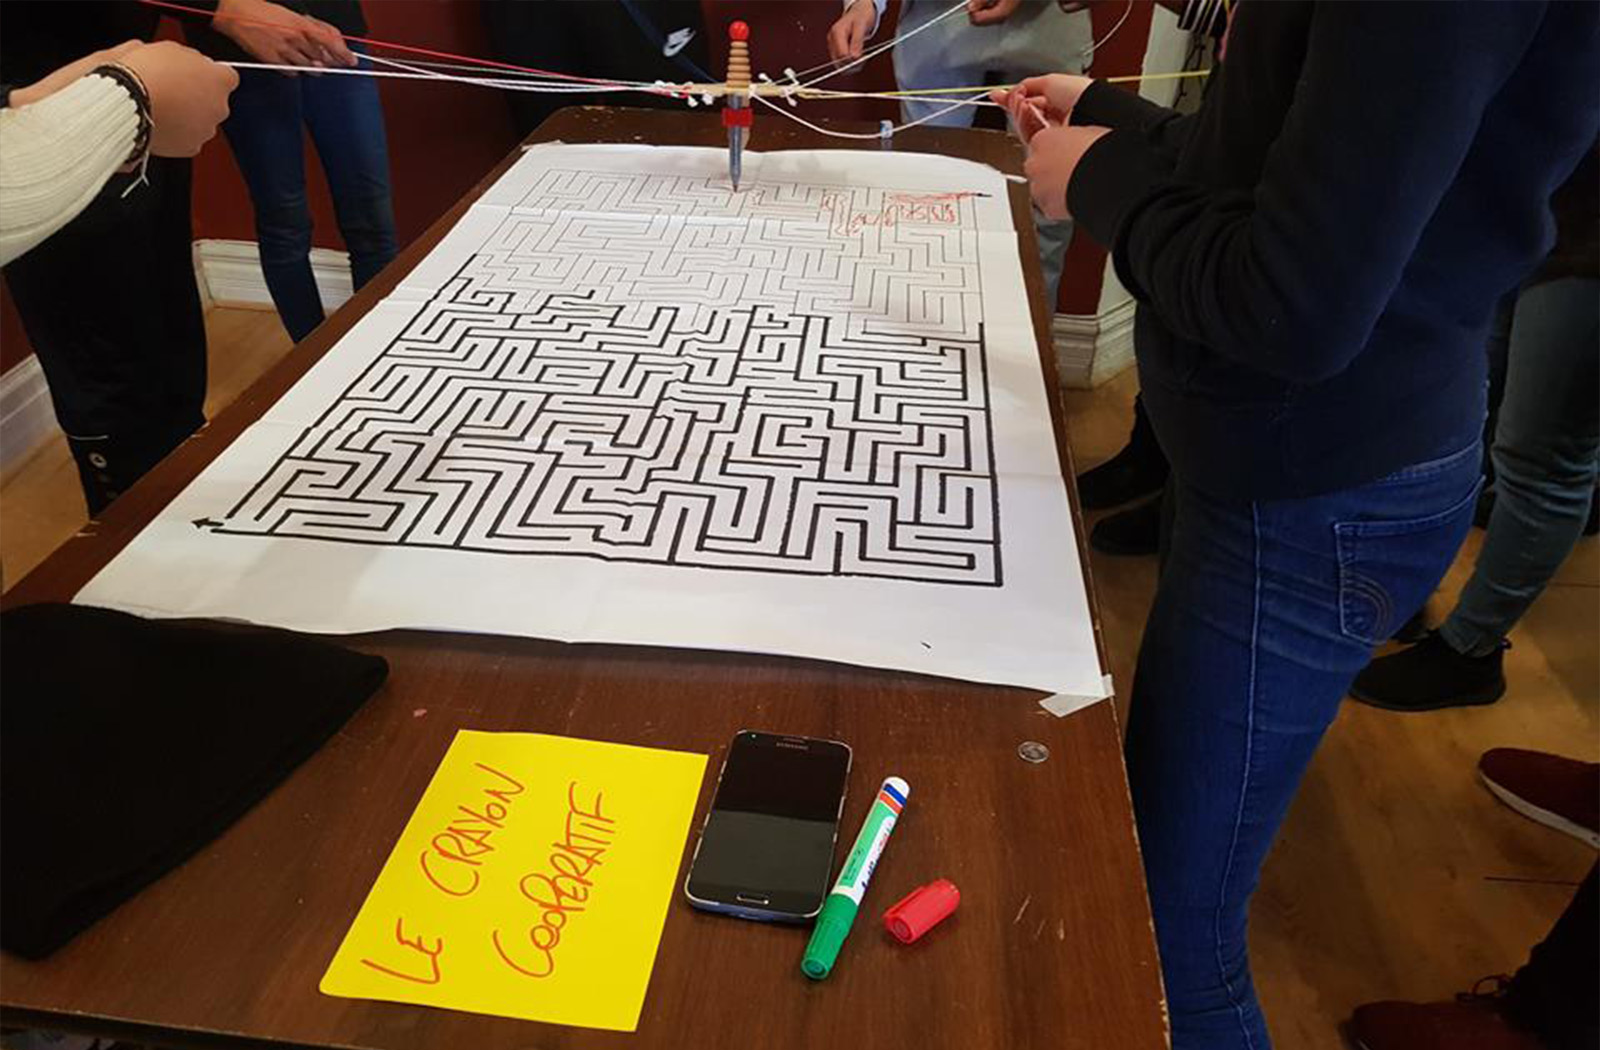 LE CRAYON
COOPERATIF
SAMSUNG